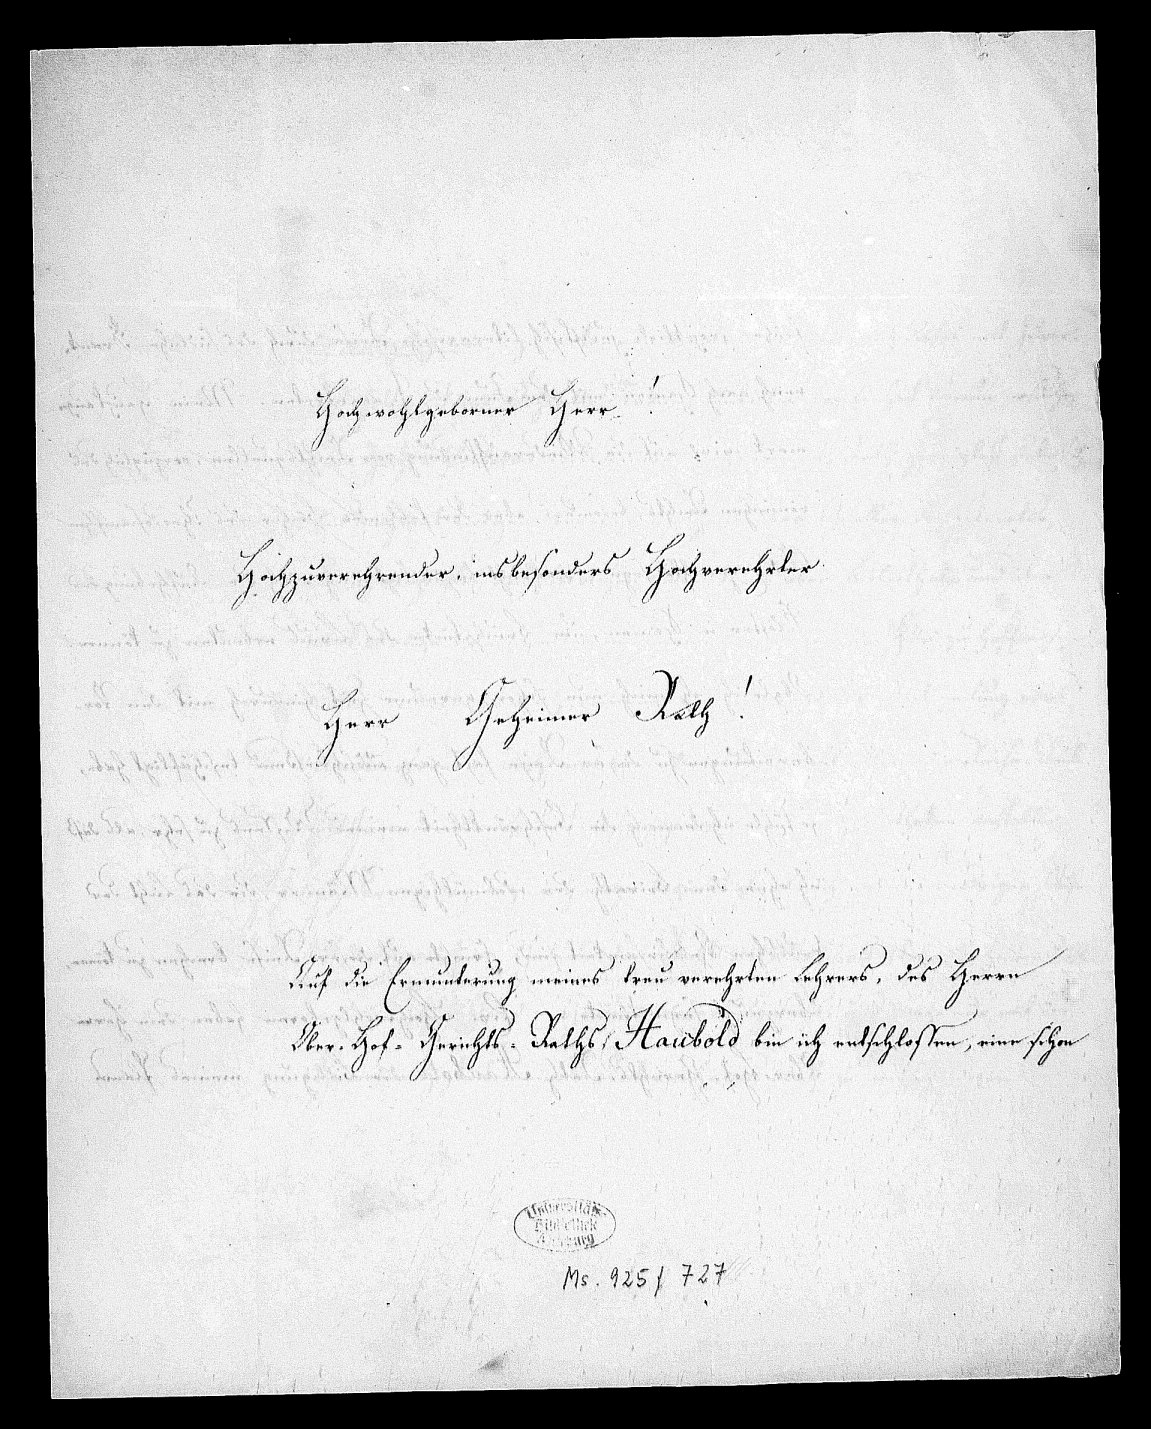 Hochwohlgeborner Herr!
Hochzuverehrender, insbesonders Hochverehrter
Herr Geheimer Rath!
Auf die Ermunterung meines treu verehrten Lehrers, des Herrn
Ober-Hof-Gerichts-Raths Haubold bin ich entschlossen, eine schon
Universitäts-
Bibliothek
Marburg
Ms. 925/ 727